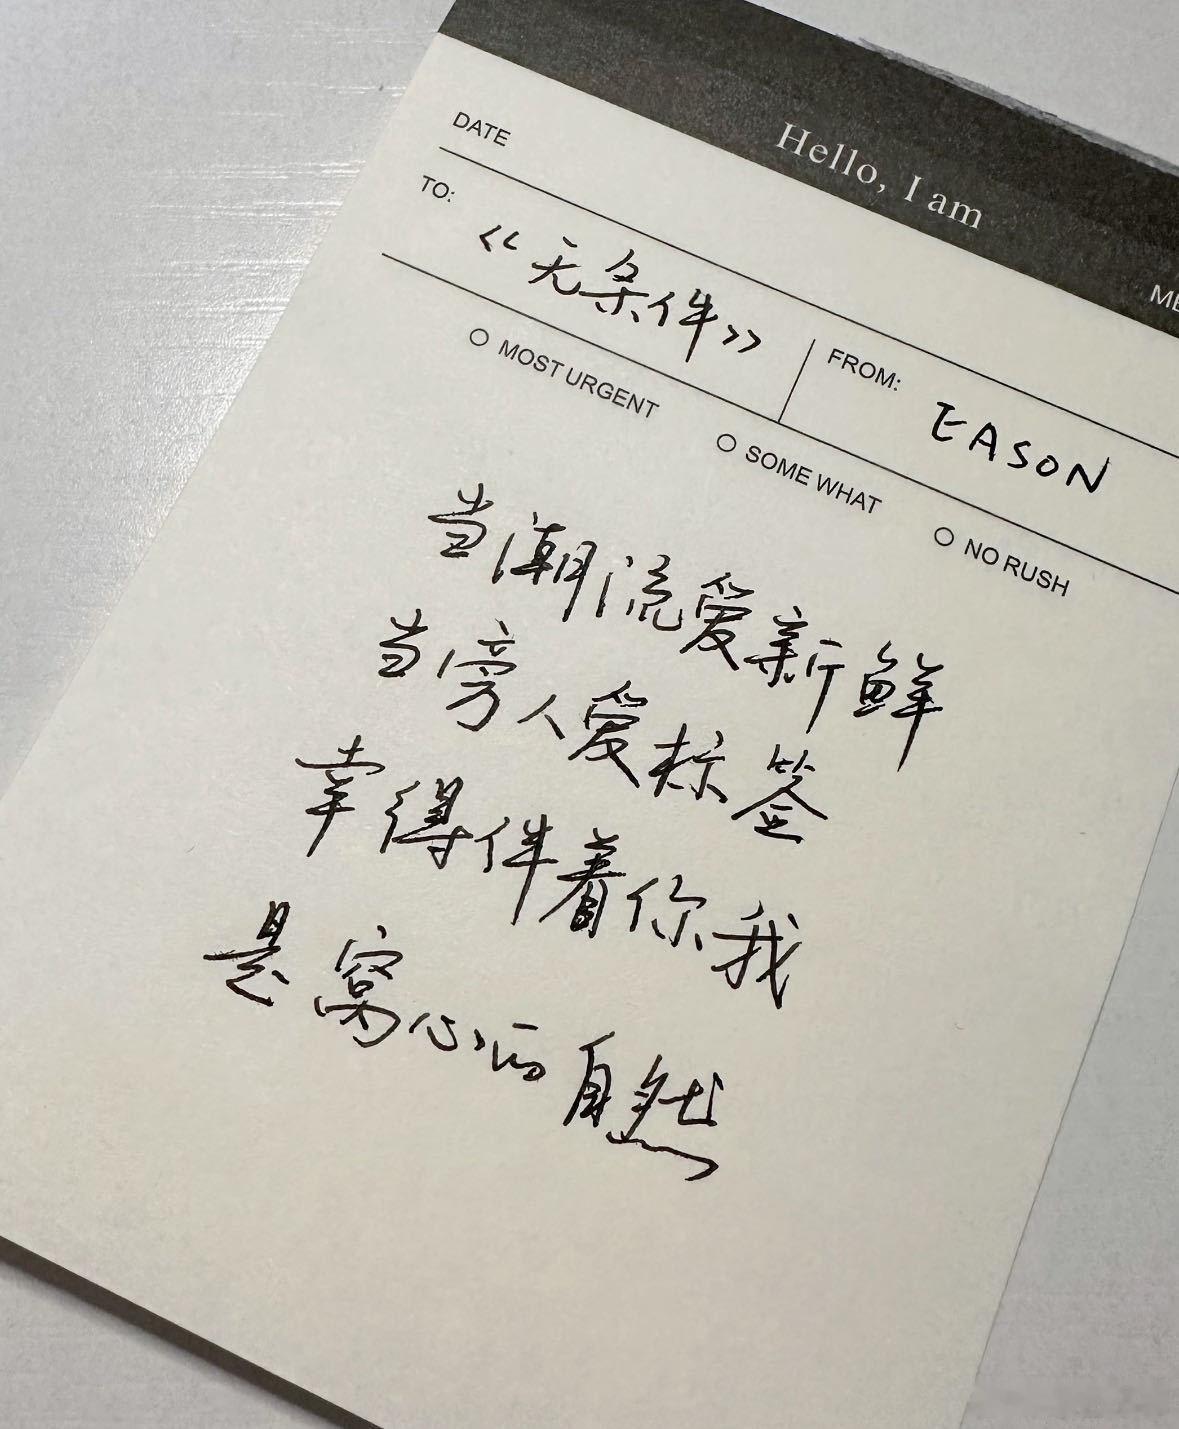 Hello, I am
ME
DATE
TO: 《无条件》
FROM: EASON
MOST URGENT
SOME WHAT
NO RUSH
当潮流爱新鲜
当旁人爱标签
幸得伴着你我
是窝心而自然